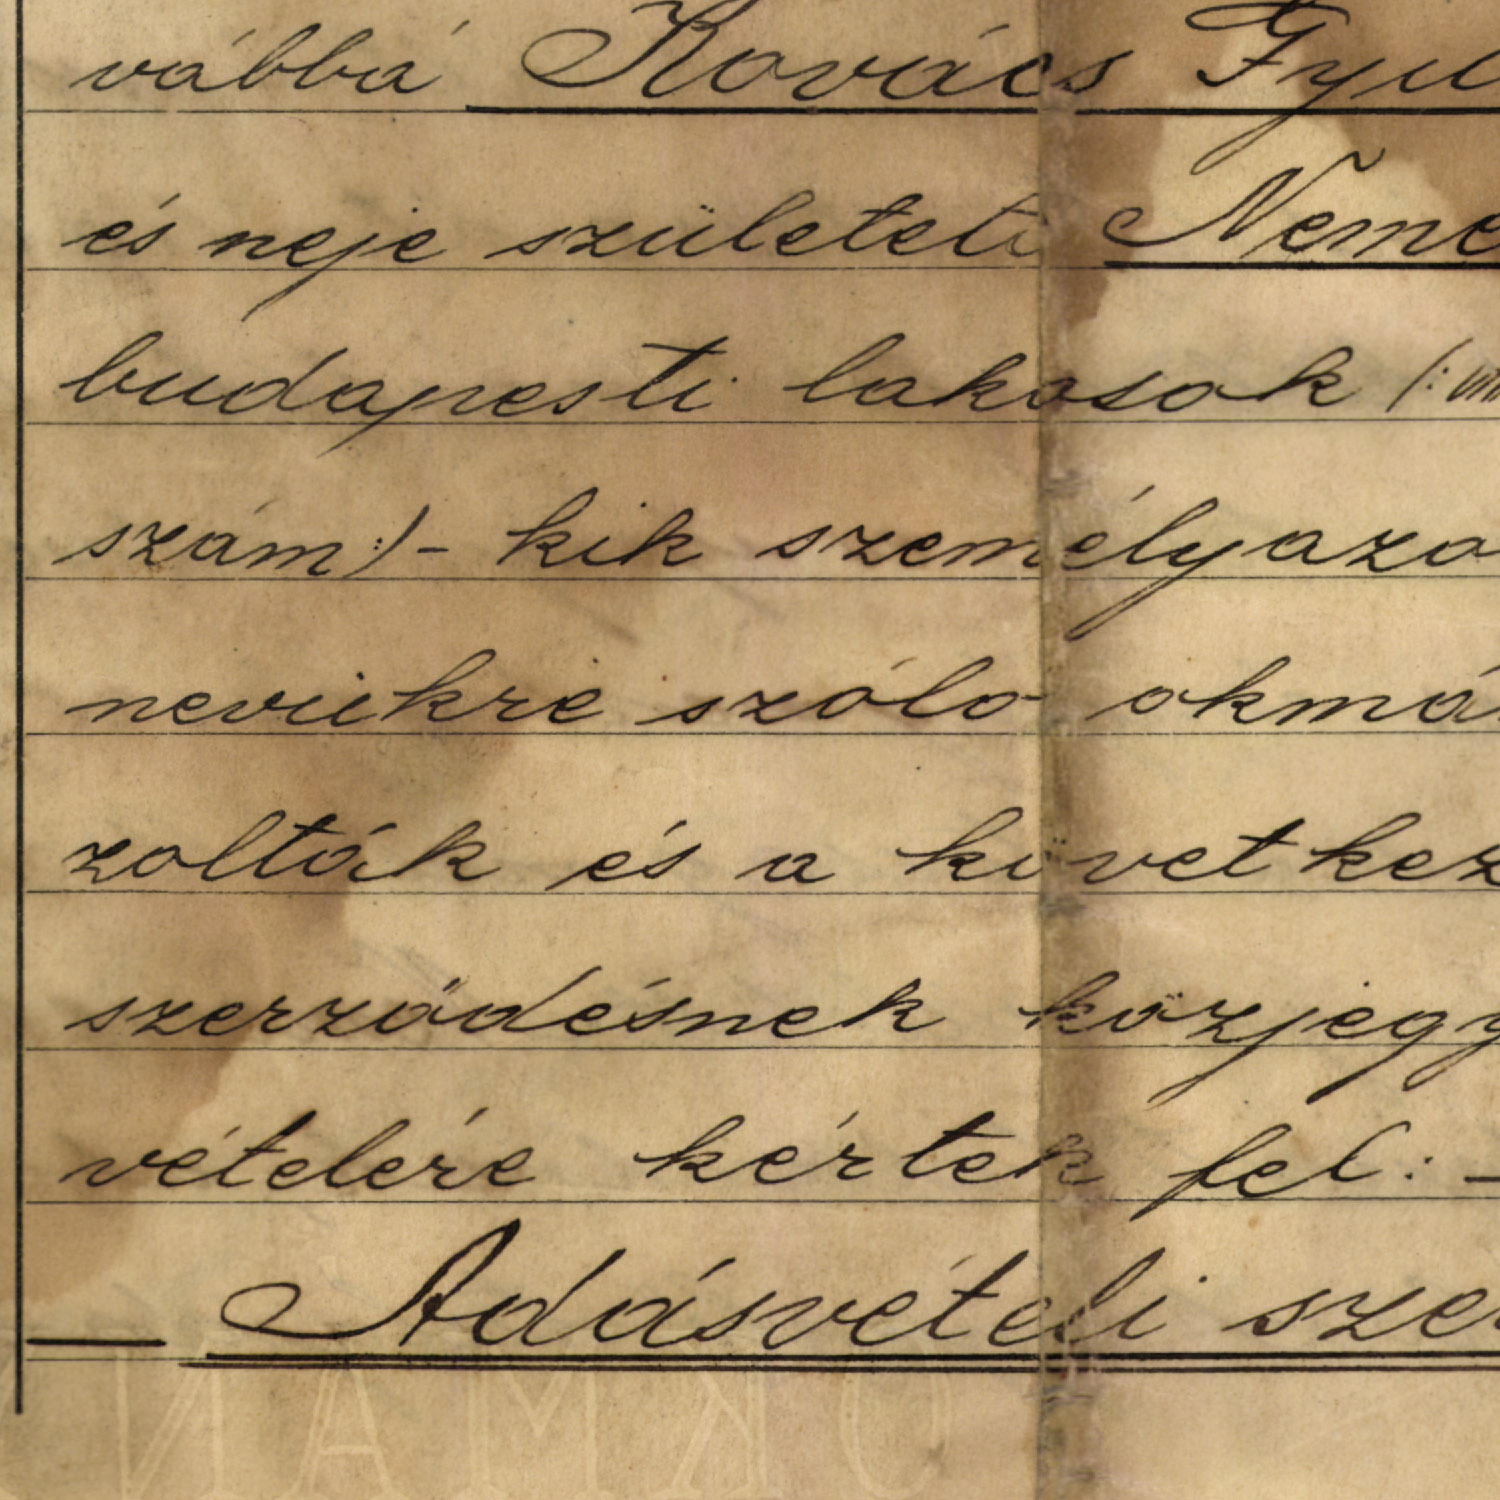 vábbá Kovács Gyul
és neje született Neme
budapesti lakosok (:
szám:)- kik személyazo
nevükre szóló okmá
zolták és a következ
szerződésnek közjegy
vételére kértek fel: —
— Adásvételi szer
OKMÁN